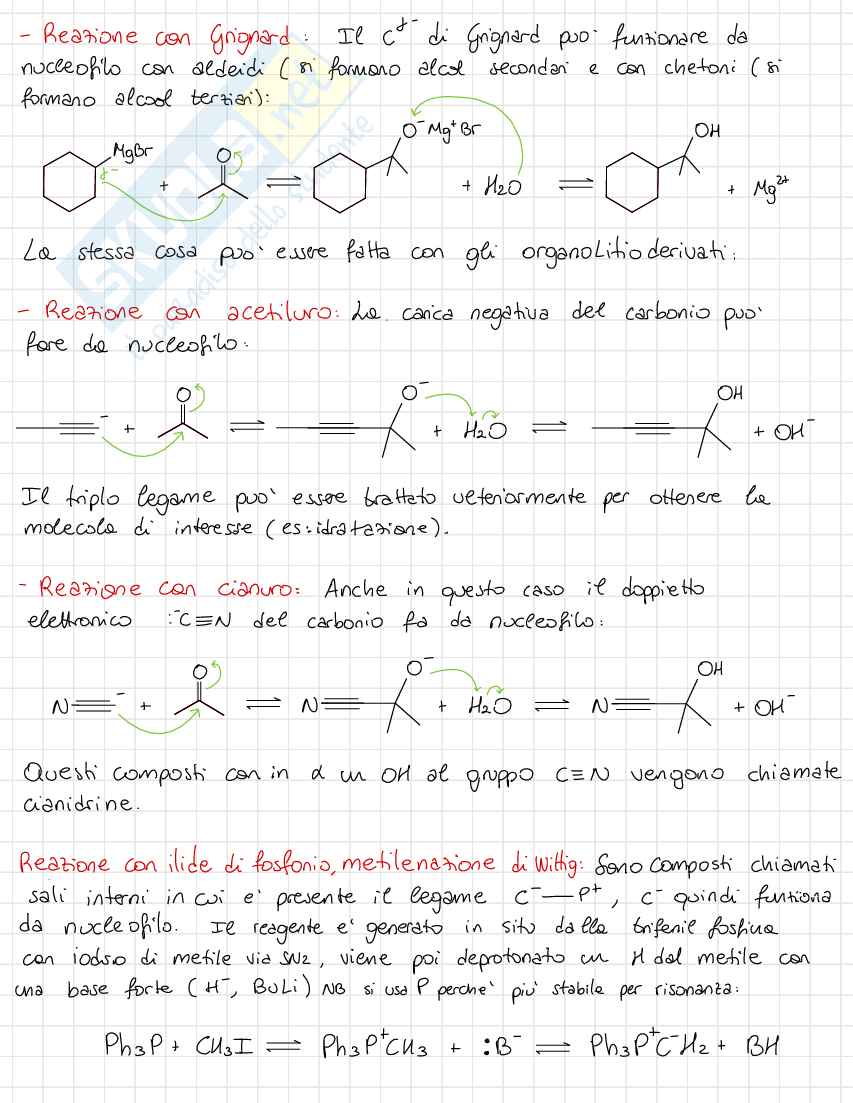 - Reazione con Grignard: Il C δ- di Grignard può funzionare da
nucleofilo con aldeidi (si formano alcol secondari e con chetoni (si
formano alcool terziari):
MgBr δ- + O ⇌ O⁻Mg⁺Br + H2O ⇌ OH + Mg²⁺
La stessa cosa può essere fatta con gli organolitioderivati.
- Reazione con acetiluro: La carica negativa del carbonio può
fare da nucleofilo:
⁻ + O ⇌ O⁻ + H2O ⇌ OH + OH⁻
Il triplo legame può essere trattato ulteriormente per ottenere la
molecola di interesse (es: idratazione).
- Reazione con cianuro: Anche in questo caso il doppietto
elettronico :⁻C≡N del carbonio fa da nucleofilo:
N ⁻ + O ⇌ N O⁻ + H2O ⇌ N OH + OH⁻
Questi composti con in α un OH al gruppo C≡N vengono chiamate
cianidrine.
Reazione con ilide di fosfonio, metilenazione di Wittig: Sono composti chiamati
sali interni in cui è presente il legame C⁻—P⁺, C⁻ quindi funziona
da nucleofilo. Il reagente è generato in situ dalla trifenil fosfina
con ioduro di metile via SN2, viene poi deprotonato un H dal metile con
una base forte (H⁻, BuLi) NB si usa P perchè più stabile per risonanza:
Ph3P + CH3I ⇌ Ph3P⁺CH3 + :B⁻ ⇌ Ph3P⁺C⁻H2 + BH